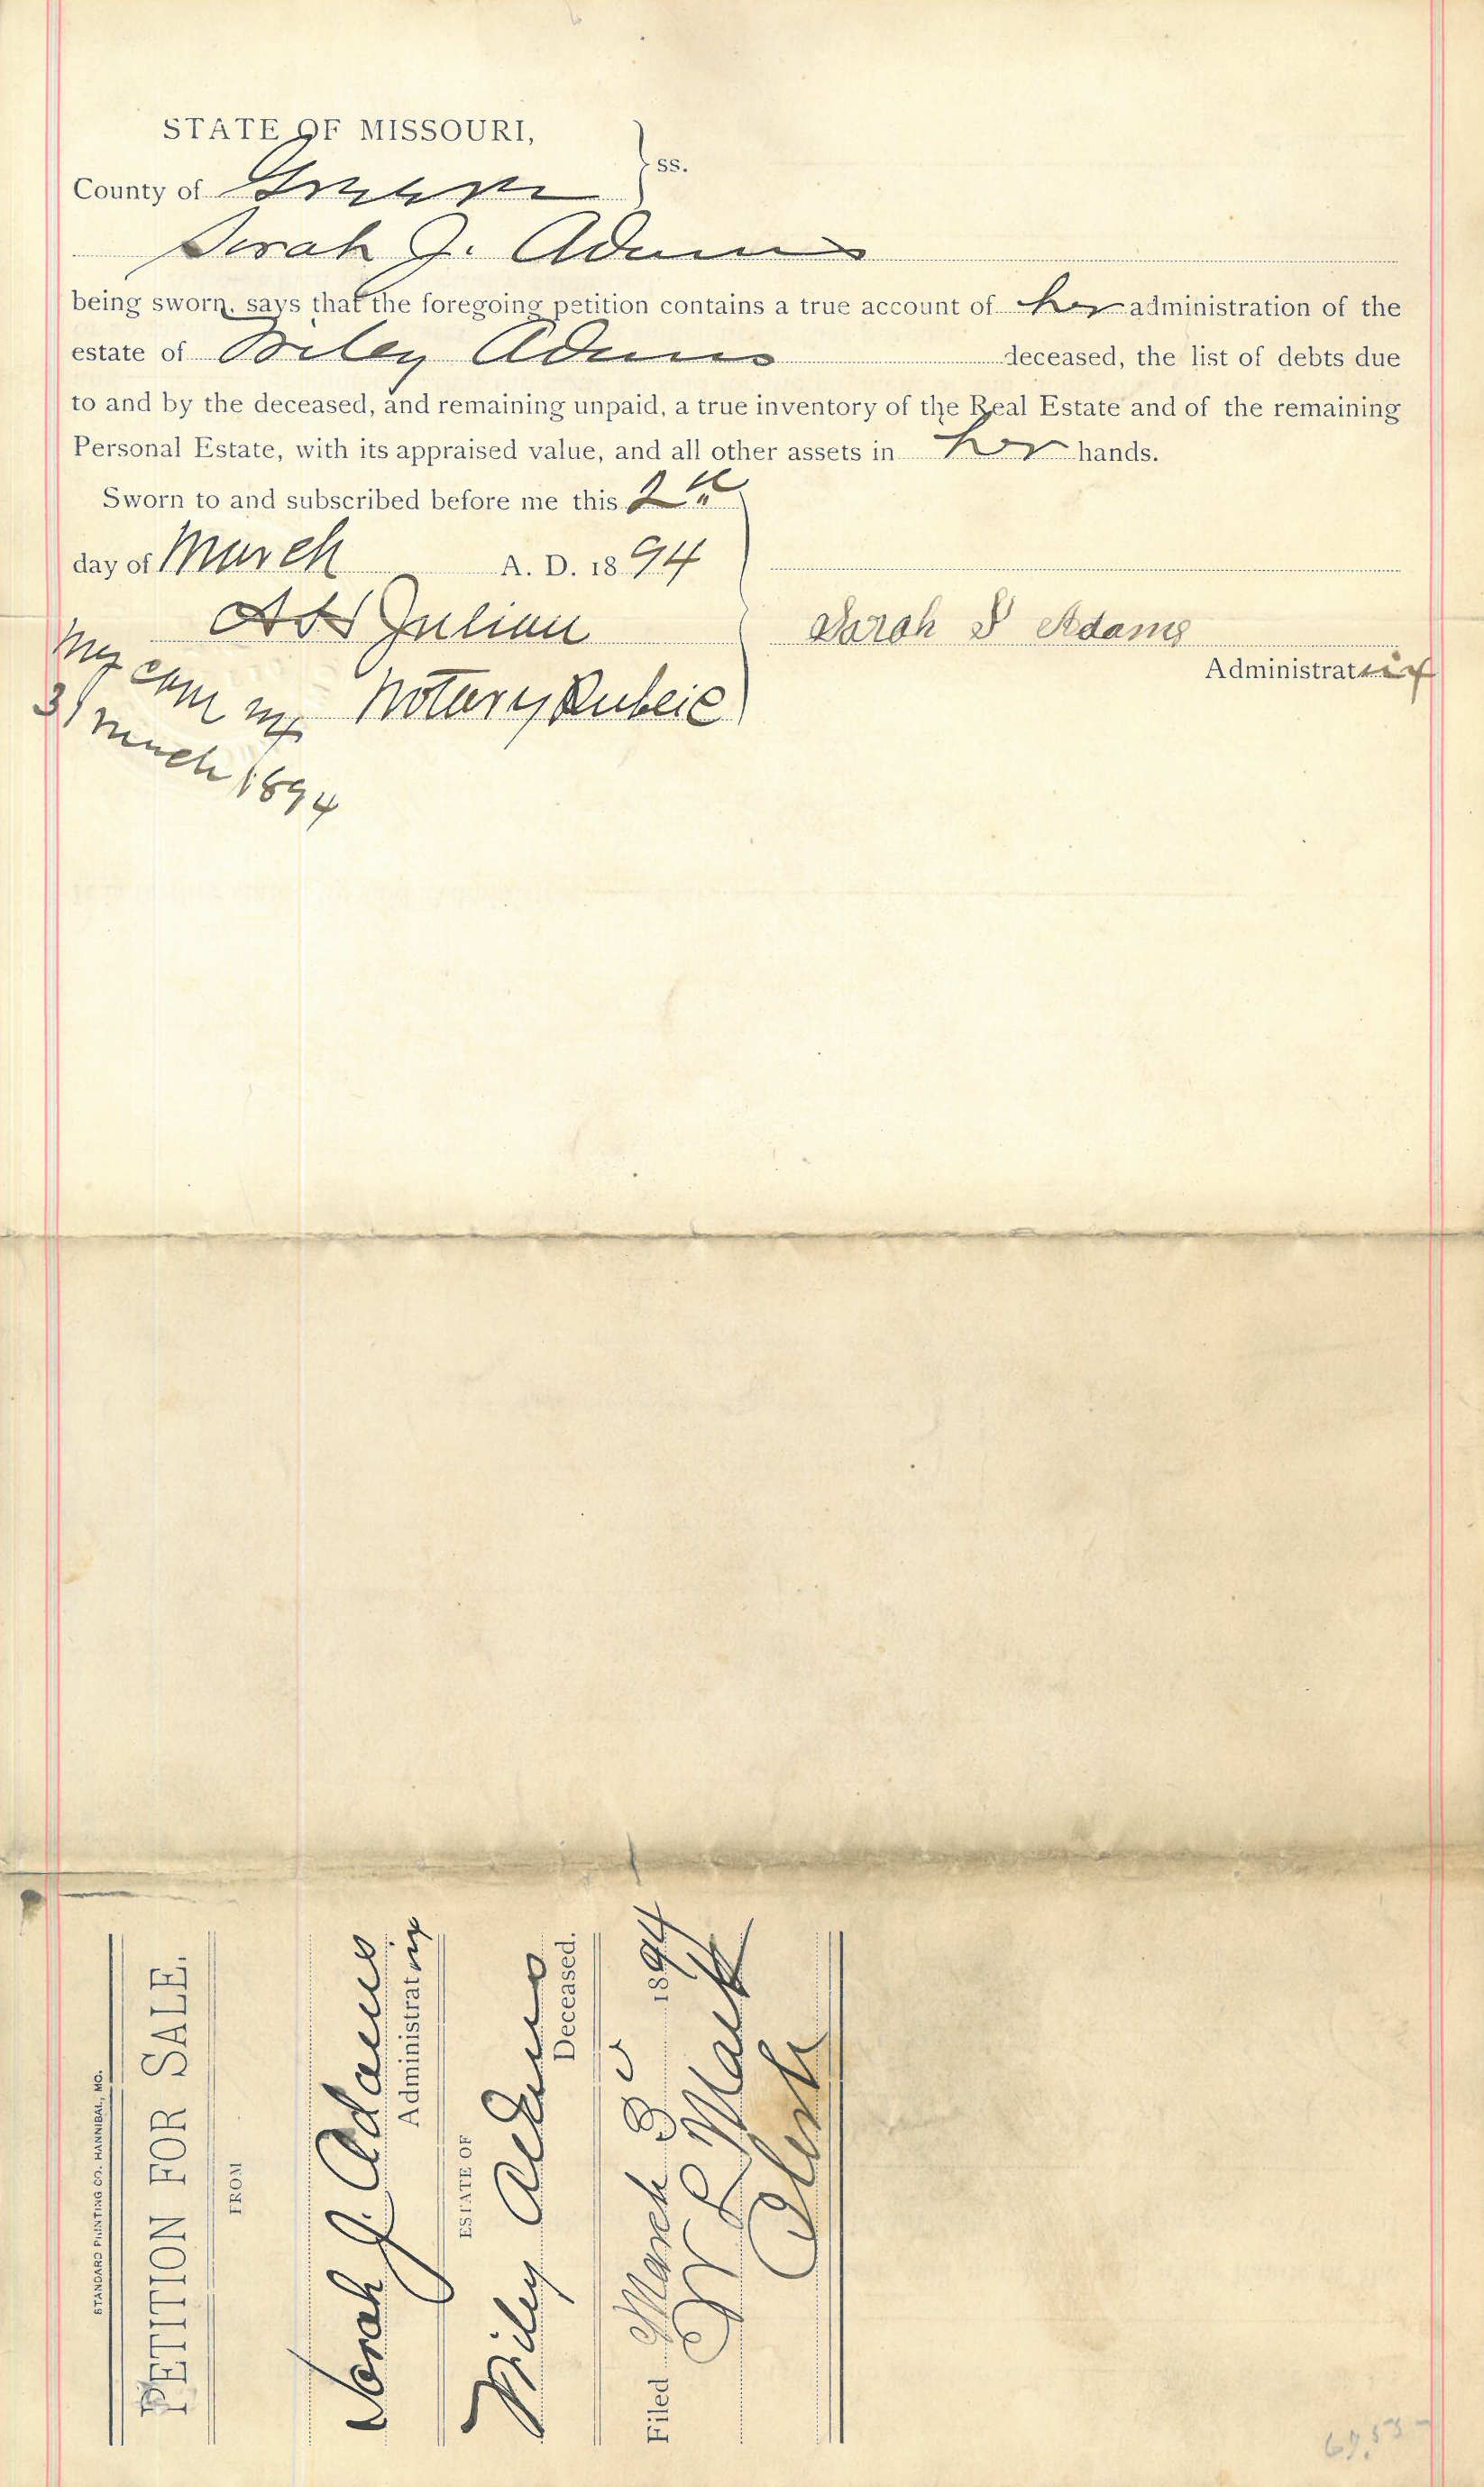 STATE OF MISSOURI,
County of Greene } ss.
Sarah J. Adams
being sworn, says that the foregoing petition contains a true account of her administration of the
estate of Wiley Adams deceased, the list of debts due
to and by the deceased, and remaining unpaid, a true inventory of the Real Estate and of the remaining
Personal Estate, with its appraised value, and all other assets in her hands.
Sworn to and subscribed before me this 2
day of March A. D. 1894
Julian
Notary Public
Sarah J Adams
Administratrix
My com
31 March 1894
STANDARD PRINTING CO. HANNIBAL, MO.
PETITION FOR SALE.
FROM
Sarah J. Adams
Administratrix
ESTATE OF
Wiley Adams
Deceased.
Filed March 3 1894
Clerk